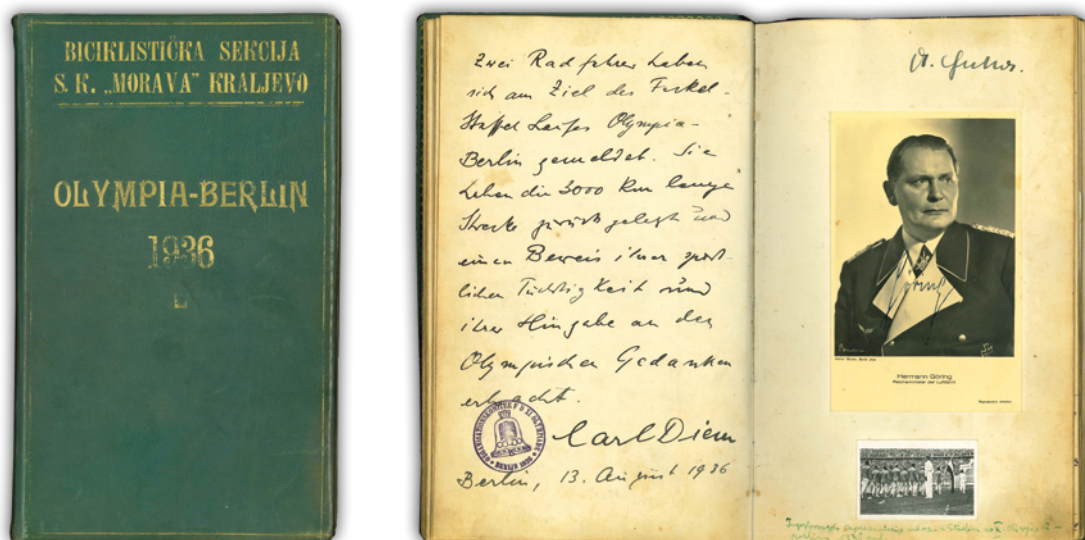 BICIKLISTIČKA SEKCIJA
S. K. „MORAVA” KRALJEVO
OLYMPIA-BERLIN
1936
Zwei Radfahrer haben
sich am Ziel des Fackel-
Staffel Laufes Olympia-
Berlin gemeldet. Sie
haben die 3000 km lange
Strecke zurück gelegt und
einen Beweis ihrer sport-
lichen Tüchtigkeit und
ihrer Hingabe an den
Olympischen Gedanken
erbracht.
Carl Diem
Berlin, 13. August 1936
Hermann Göring
Reichsminister der Luftfahrt